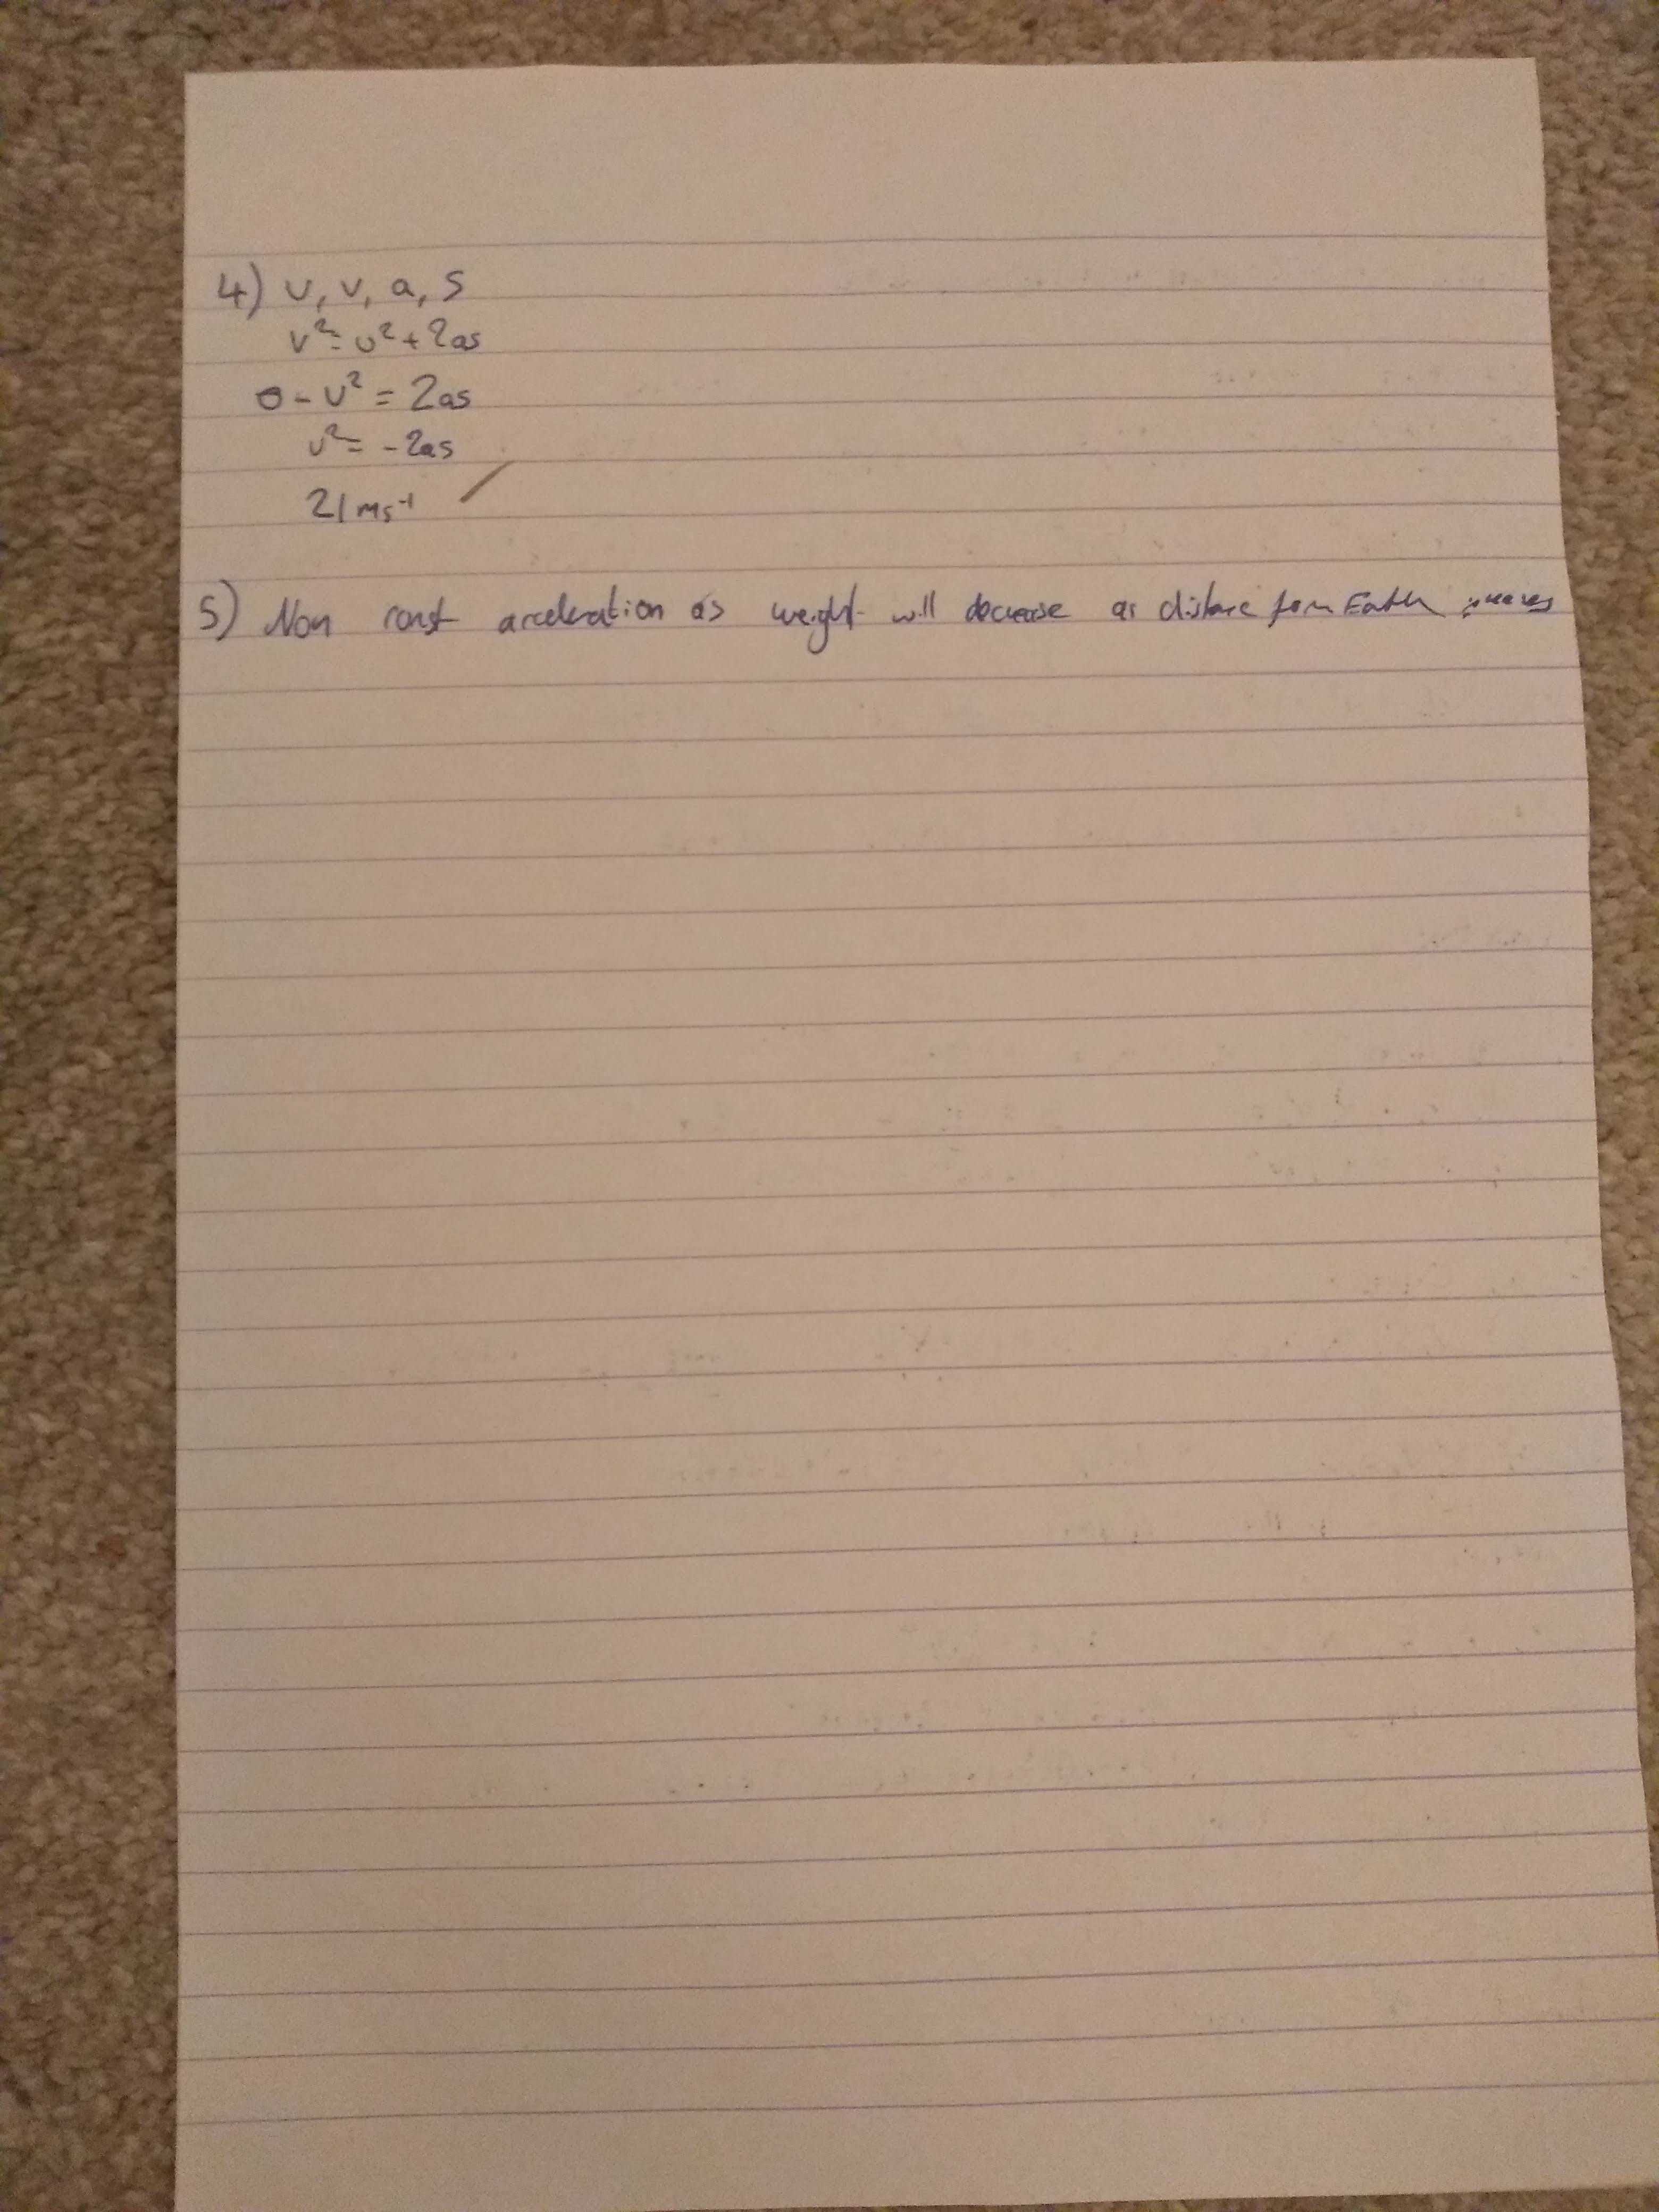 4) u, v, a, s
v² = u² + 2as
0 - u² = 2as
u² = -2as
21 ms⁻¹
5) Non const acceleration as weight will decrease as distance from Earth